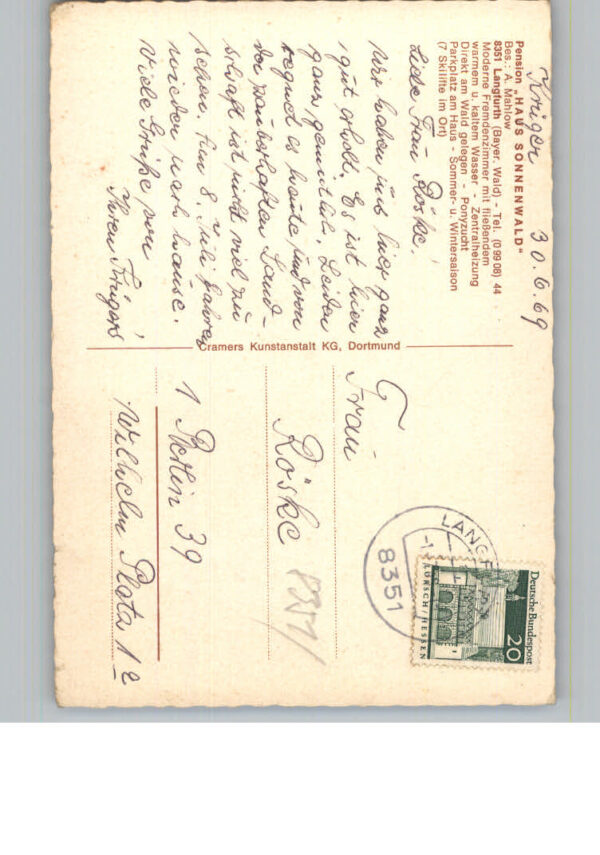 Krüger 30.6.69
Pension „HAUS SONNENWALD"
Bes.: A. Mahlow
8351 Langfurth (Bayer. Wald) - Tel. (0 99 08) 44
Moderne Fremdenzimmer mit fließendem
warmem u. kaltem Wasser - Zentralheizung
Direkt am Wald gelegen - Ponyzucht
Parkplatz am Haus - Sommer- u. Wintersaison
(7 Skilifte im Ort)
Liebe Frau Röske!
Wir haben uns hier ganz
gut erholt. Es ist hier
ganz gemütlich. Leider
regnet es heute und von
der zauberhaften Land-
schaft ist nicht viel zu
sehen. Am 8. Juli fahren
wieder nach hause.
Viele Grüße von
Ihren Krügers
Cramers Kunstanstalt KG, Dortmund
Frau
Röske
8351
1 Berlin 39
Wilhelm Platz 1
LANGF
8351
Deutsche Bundespost
20
LORSCH/HESSEN